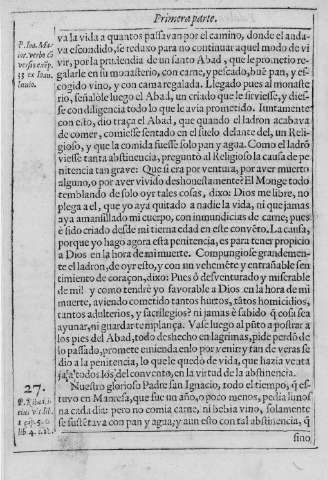 Primera parte.
va la vida a quantos passavan por el camino, donde el anda-
va escondido, se reduxo para no continuar aquel modo de vi-
vir, por la prudencia de un santo Abad, que le prometio re-
galarle en su monasterio, con carne, y pescado, buẽ pan, y es-
cogido vino, y con cama regalada. Llegado pues al monaste-
rio, señalole luego el Abad, un criado que le sirviesse, y dies-
se con diligencia todo lo que le avia prometido. Iuntamente
con esto, dio traça el Abad, que quando el ladron acabava
de comer, comiesse sentado en el suelo delante del, un Reli-
gioso, y que la comida fuesse solo pan y agua. Como el ladrõ
viesse tanta abstinencia, preguntò al Religioso la causa de pe-
nitencia tan grave: Que si era por ventura, por aver muerto
alguno, o por aver vivido deshonestamente? El Monge todo
temblando de solo oyr tales cosas, dixo: Dios me libre, no
plega a el, que yo aya quitado a nadie la vida, ni que jamas
aya amansillado mi cuerpo, con inmundicias de carne; pues
è sido criado desde mi tierna edad en este convẽto. La causa,
porque yo hago agora esta penitencia, es para tener propicio
a Dios en la hora de mi muerte. Compungiose grandemen-
te el ladron, de oyr esto, y con un vehemente y entrañable sen
timiento de coraçon, dixo: Pues ò desventurado y miserable
de mi! y como tendrè yo favorable a Dios en la hora de mi
muerte, aviendo cometido tantos hurtos, tãtos homicidios,
tantos adulterios, y sacrilegios? ni jamas è sabido q̃ cosa sea
ayunar, ni guardar templança. Vase luego al pũto a postrar a
los pies del Abad, todo deshecho en lagrimas, pide perdõ de
lo passado, promete emienda en lo por venir: y tan de veras se
dio a la penitencia, lo que le quedo de vida, que hazia venta
ja a todos los del convento, en la virtud de la abstinencia.
27. Nuestro glorioso Padre san Ignacio, todo el tiempo, q̃ es-
tuvo en Manresa, que fue un año, o poco menos, pedia limos
na cada dia: pero no comia carne, ni bebia vino, solamente
se sustẽtava con pan y agua, y aun esso con tal abstinencia, q̃
sino